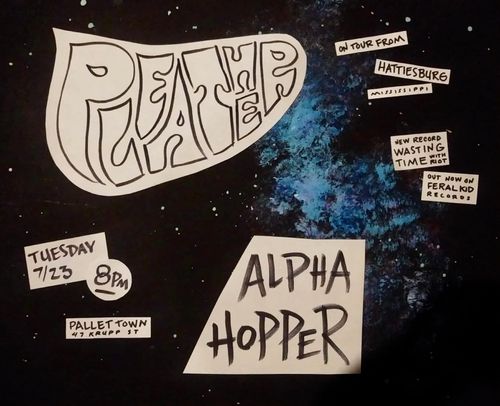 PLEATHER
ON TOUR FROM
HATTIESBURG
MISSISSIPPI
NEW RECORD
WASTING
TIME WITH RIOT
OUT NOW ON
FERAL KID
RECORDS
TUESDAY
7/23
8PM
PALLET TOWN
47 KRUPP ST
ALPHA
HOPPER